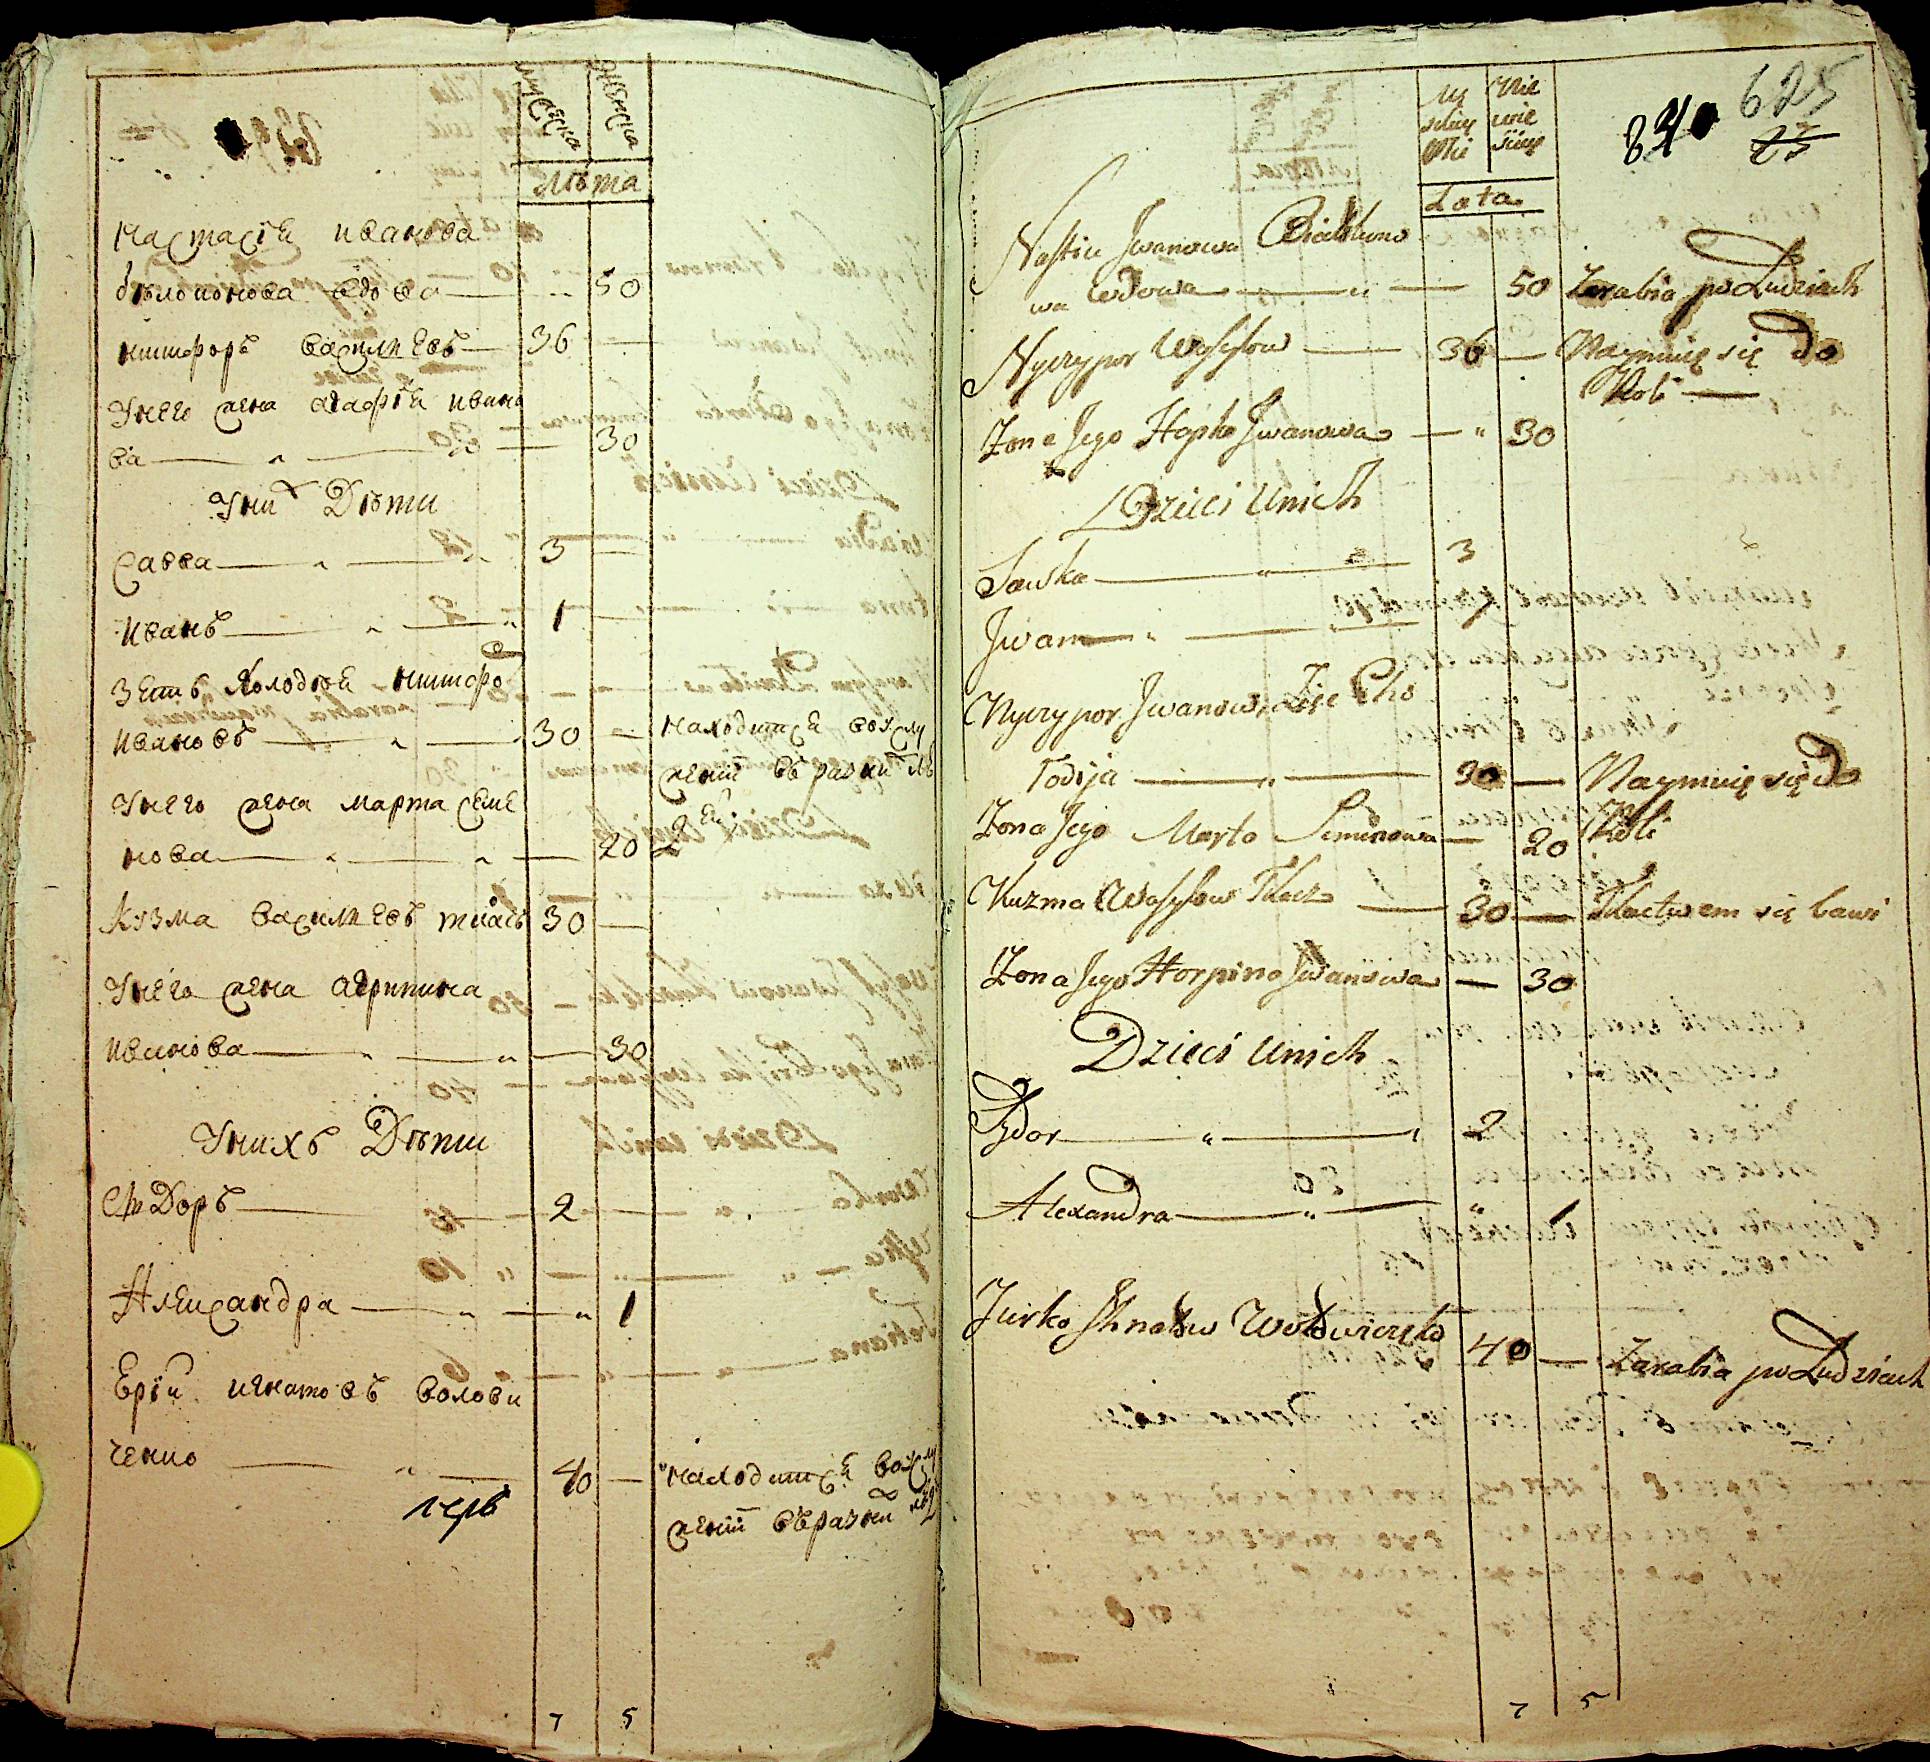 мужеска
женска
лѣта
Настасія Иванова
бѣлоконова вдова — „ 50
Никифоръ Василиевъ — 36 —
Унего жена Агафія Ивано
ва — „ — 30
Уних Дѣти
Савва — „ — 3 —
Иванъ — „ — 1 —
Зять Холодїя Никифо
Ивановъ — „ — 30 — находится воуслу
женїи въ разнихъ лю
Унего жена Марта Семе
нова — „ — „ — 20 дей
Кузма Василиевъ ткачъ 30 —
Унего жена Агрипина
Иванова — „ — „ — 30
Унихъ Дѣти
Фѣдоръ — 2
Александра — „ — „ 1
Ерїй Игнатовъ Волови
ченко — „ — 40 — находится воуслу
женїи въразних
7 5
840 625
23
Męsczyzn
Lata
Nastia Jwanowa Białokono
wa Wdowa — „ — 50 Zarabia po Ludziach
Nyczypor Wasylow — 36 — Naymuię się do
Robi —
Zona Jego Hapka Jwanowa — „ 30
Dzieci Unich
Sawka — „ — 3
Jwan — „ —
Nyczypor Jwanow Zięć Cho
łodija — „ — 30 — Naymuię się do
Robi
Zona Jego Marta Semenowa — 20
Kuzma Wasylow Tkacz — 30 — Tkactwem się bawi
Zona Jego Horpina Jwanowa — 30
Dzieci Unich
Fydor — „ — „ 2
Alexandra — „ — „ 1
Jurko Ihnatow Wołowiczenko 40 — Zarabia po Ludziach
7 5